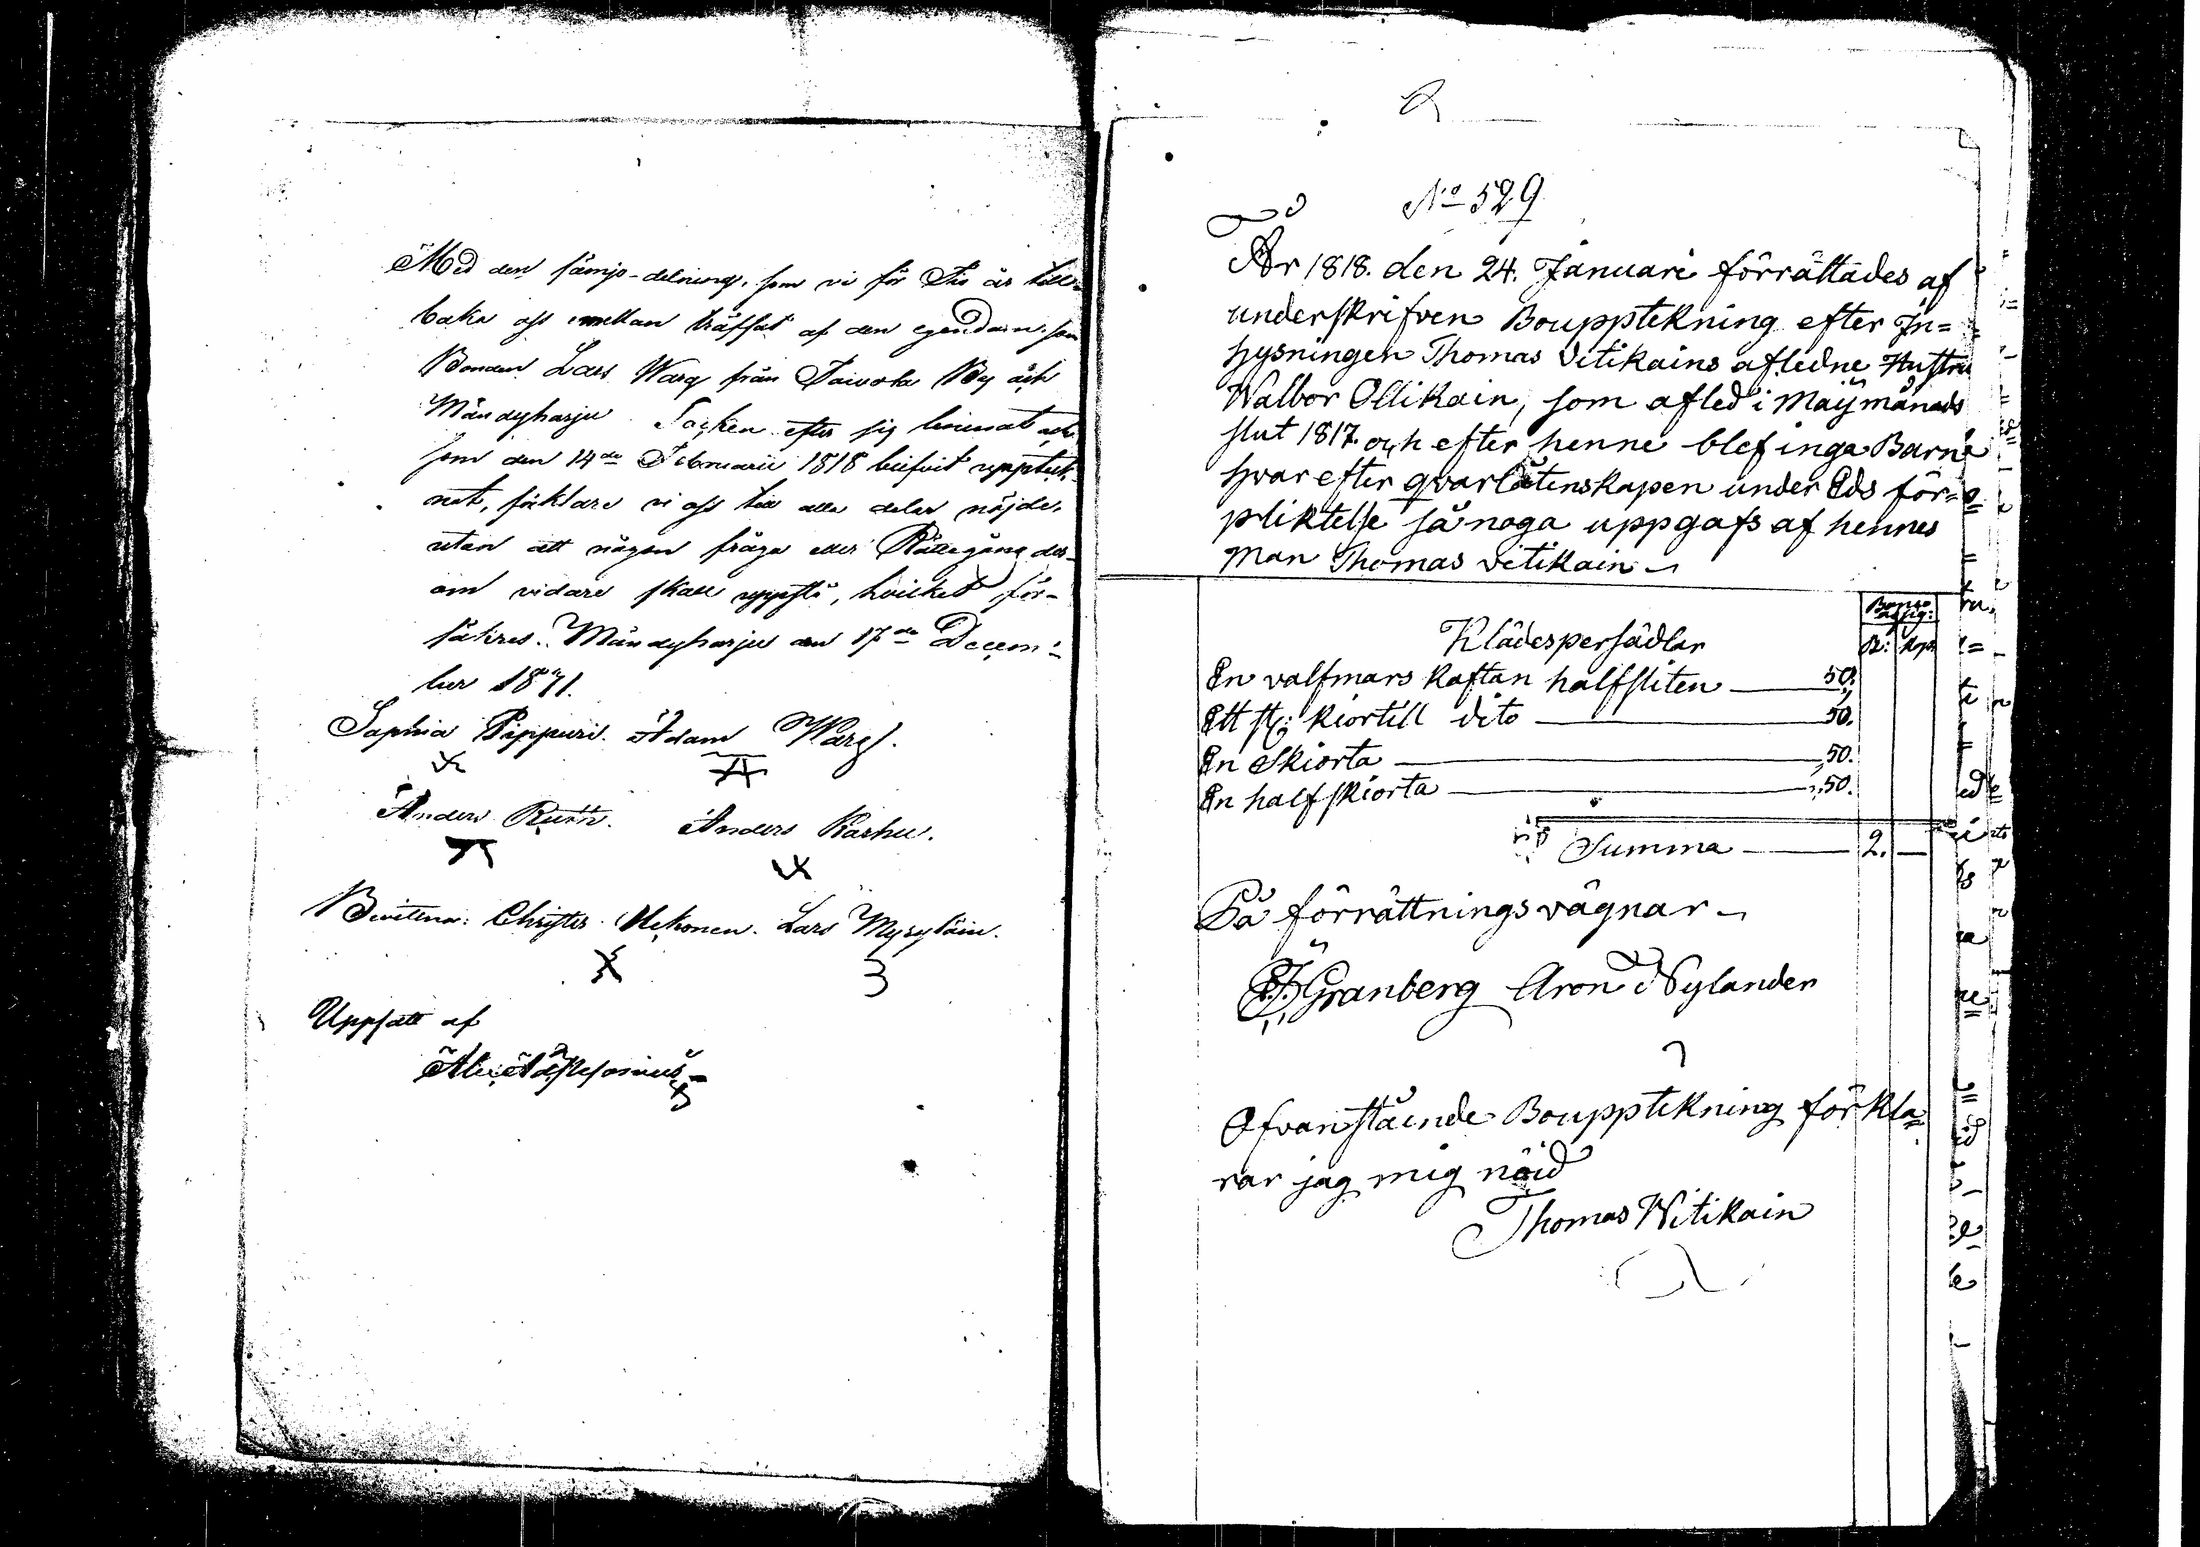 Med den sämjo-delning, som vi för Tio år till-
baka oss emellan träffat af den egendom som
Bonden Lars Warg från Toivola By och
Mändyharju Socken efter sig lemnat och
som den 14de Februarii 1818 blifvit uppteck-
nat, förklare vi oss till alla delar nöjde,
utan att någon fråga eller Rättegång der-
om vidare skall uppstå, hvilket för-
säkres. Mändyharju den 17de Decem-
ber 1821.
Sophia Pippuri. Adam Warg.
Anders Ruth. Anders Karhu.
Bevittna: Christer Hekonen. Lars Myryläin.
Uppsatt af
No 529
År 1818. den 24. Januari förrättades af
underskrifven Bouppteckning efter In=
hysningen Thomas Vitikains afledne Hustru
Walbor Ollikain, som afled i Maij månads
slut 1817. och efter henne blef inga Barn
hvar efter qvarlåtenskapen under Eds för=
pliktelse så noga uppgafs af hennes
man Thomas Vitikain
Banco
R: Kop
Klädespersädlar
En valfmars Kaftan halfsliten 50.
Ett st: kiortill dito 50.
En Skiorta 50.
En half skiorta 50.
Summa 2. —
På förrättnings vägnar
Granberg Aron Nylander
Ofvanstäende Bouppteckning förkla=
rar jag mig nöid
Thomas Witikain